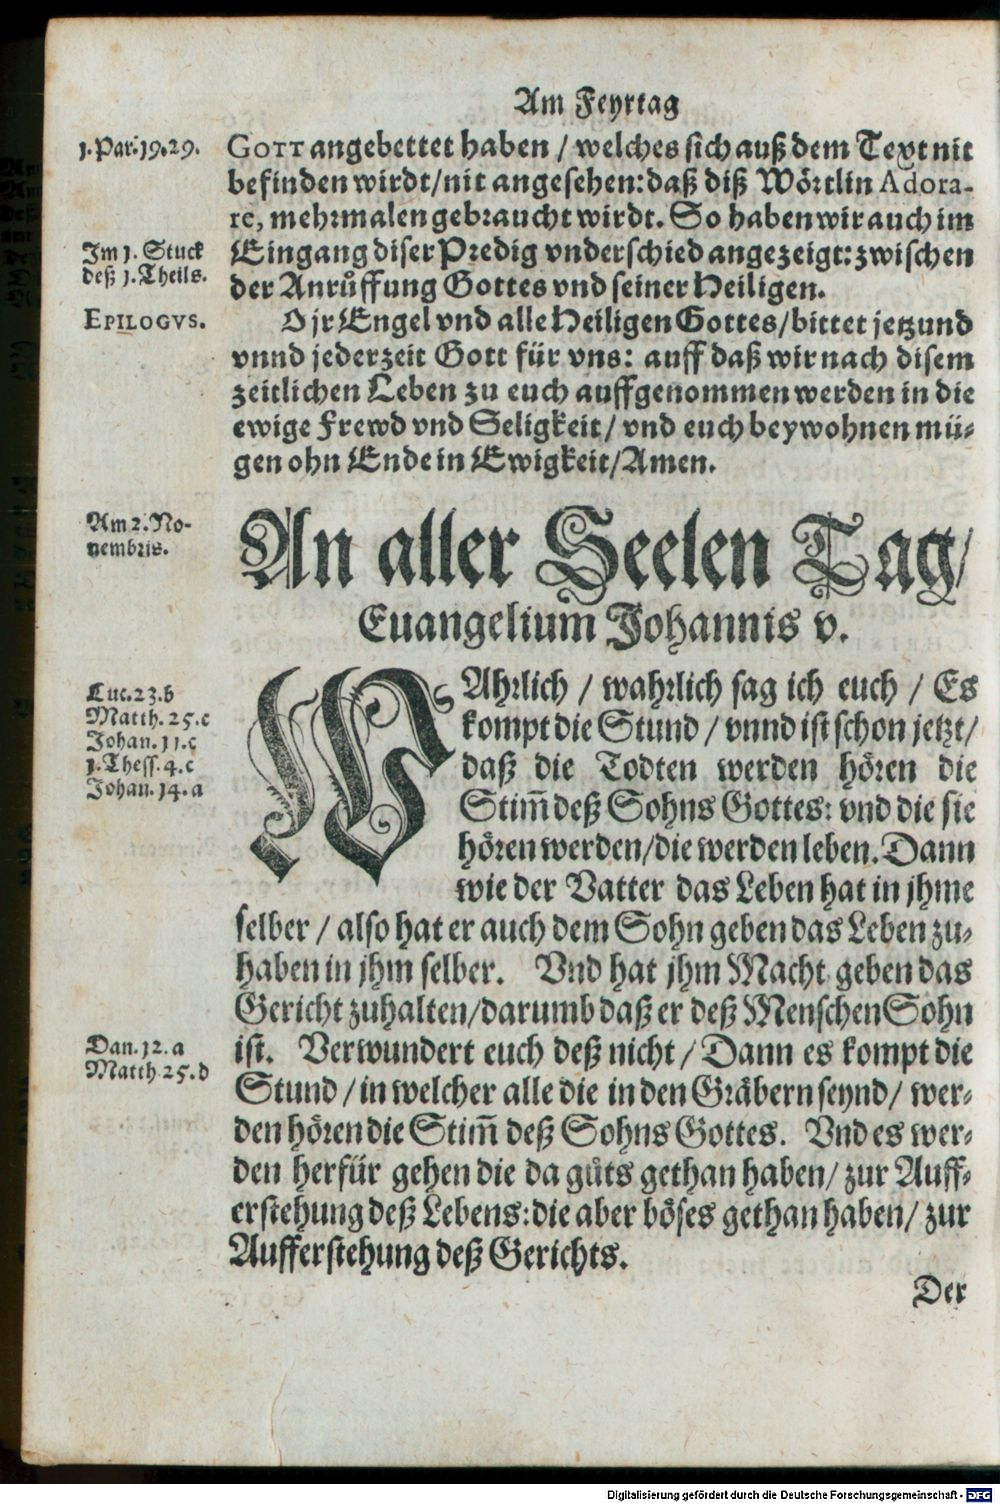 Am Feyrtag
1. Par. 19. 29.
GOTT angebettet haben / welches sich auß dem Text nit
befinden wirdt/nit angesehen: daß diß Wörtlin Adora-
re, mehrmalen gebraucht wirdt. So haben wir auch im
Im 1. Stuck
deß 1. Theils.
Eingang diser Predig vnderschied angezeigt: zwischen
der Anrůffung Gottes vnd seiner Heiligen.
EPILOGVS.
O jr Engel vnd alle Heiligen Gottes/bittet jetzund
vnnd jederzeit Gott für vns: auff daß wir nach disem
zeitlichen Leben zu euch auffgenommen werden in die
ewige Frewd vnd Seligkeit/ vnd euch beywohnen mü-
gen ohn Ende in Ewigkeit/Amen.
Am 2. No-
vembris.
An aller Seelen Tag/
Euangelium Johannis v.
Luc. 23. b
Matth. 25. c
Johan. 11. c
1. Thess. 4. c
Johan. 14. a
WAhrlich / wahrlich sag ich euch / Es
kompt die Stund / vnnd ist schon jetzt/
daß die Todten werden hören die
Stim̄ deß Sohns Gottes: vnd die sie
hören werden/die werden leben. Dann
wie der Vatter das Leben hat in jhme
selber / also hat er auch dem Sohn geben das Leben zu-
haben in jhm selber. Vnd hat jhm Macht geben das
Gericht zuhalten/darumb daß er deß Menschen Sohn
Dan. 12. a
Matth 25. d
ist. Verwundert euch deß nicht / Dann es kompt die
Stund / in welcher alle die in den Gräbern seynd / wer-
den hören die Stim̄ deß Sohns Gottes. Vnd es wer-
den herfür gehen die da gůts gethan haben/ zur Auff-
erstehung deß Lebens: die aber böses gethan haben/ zur
Aufferstehung deß Gerichts.
Der
Digitalisierung gefördert durch die Deutsche Forschungsgemeinschaft - DFG